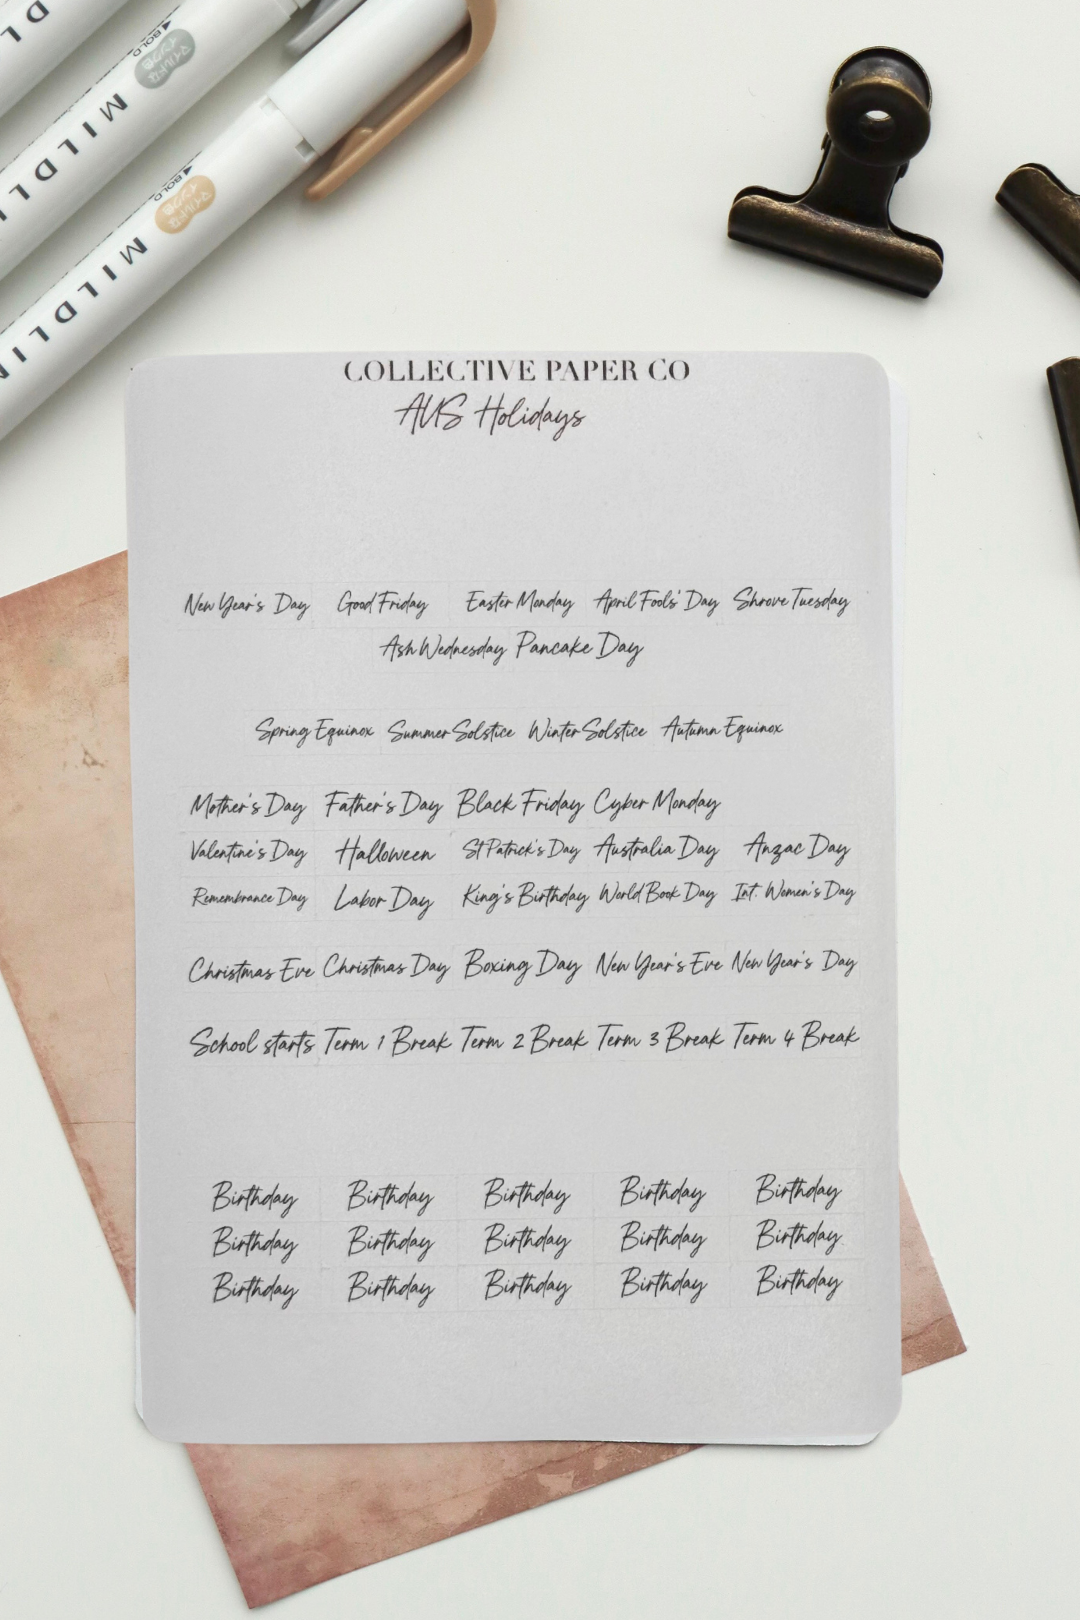 DL
BOLD
マイルドな
インク色
MILDLI
BOLD
マイルドな
インク色
MILDLIN
COLLECTIVE PAPER CO
AUS Holidays
New Year's Day Good Friday Easter Monday April Fools' Day Shrove Tuesday
Ash Wednesday Pancake Day
Spring Equinox Summer Solstice Winter Solstice Autumn Equinox
Mother's Day Father's Day Black Friday Cyber Monday
Valentine's Day Halloween St Patrick's Day Australia Day Anzac Day
Remembrance Day Labor Day King's Birthday World Book Day Int. Women's Day
Christmas Eve Christmas Day Boxing Day New Year's Eve New Year's Day
School starts Term 1 Break Term 2 Break Term 3 Break Term 4 Break
Birthday Birthday Birthday Birthday Birthday
Birthday Birthday Birthday Birthday Birthday
Birthday Birthday Birthday Birthday Birthday